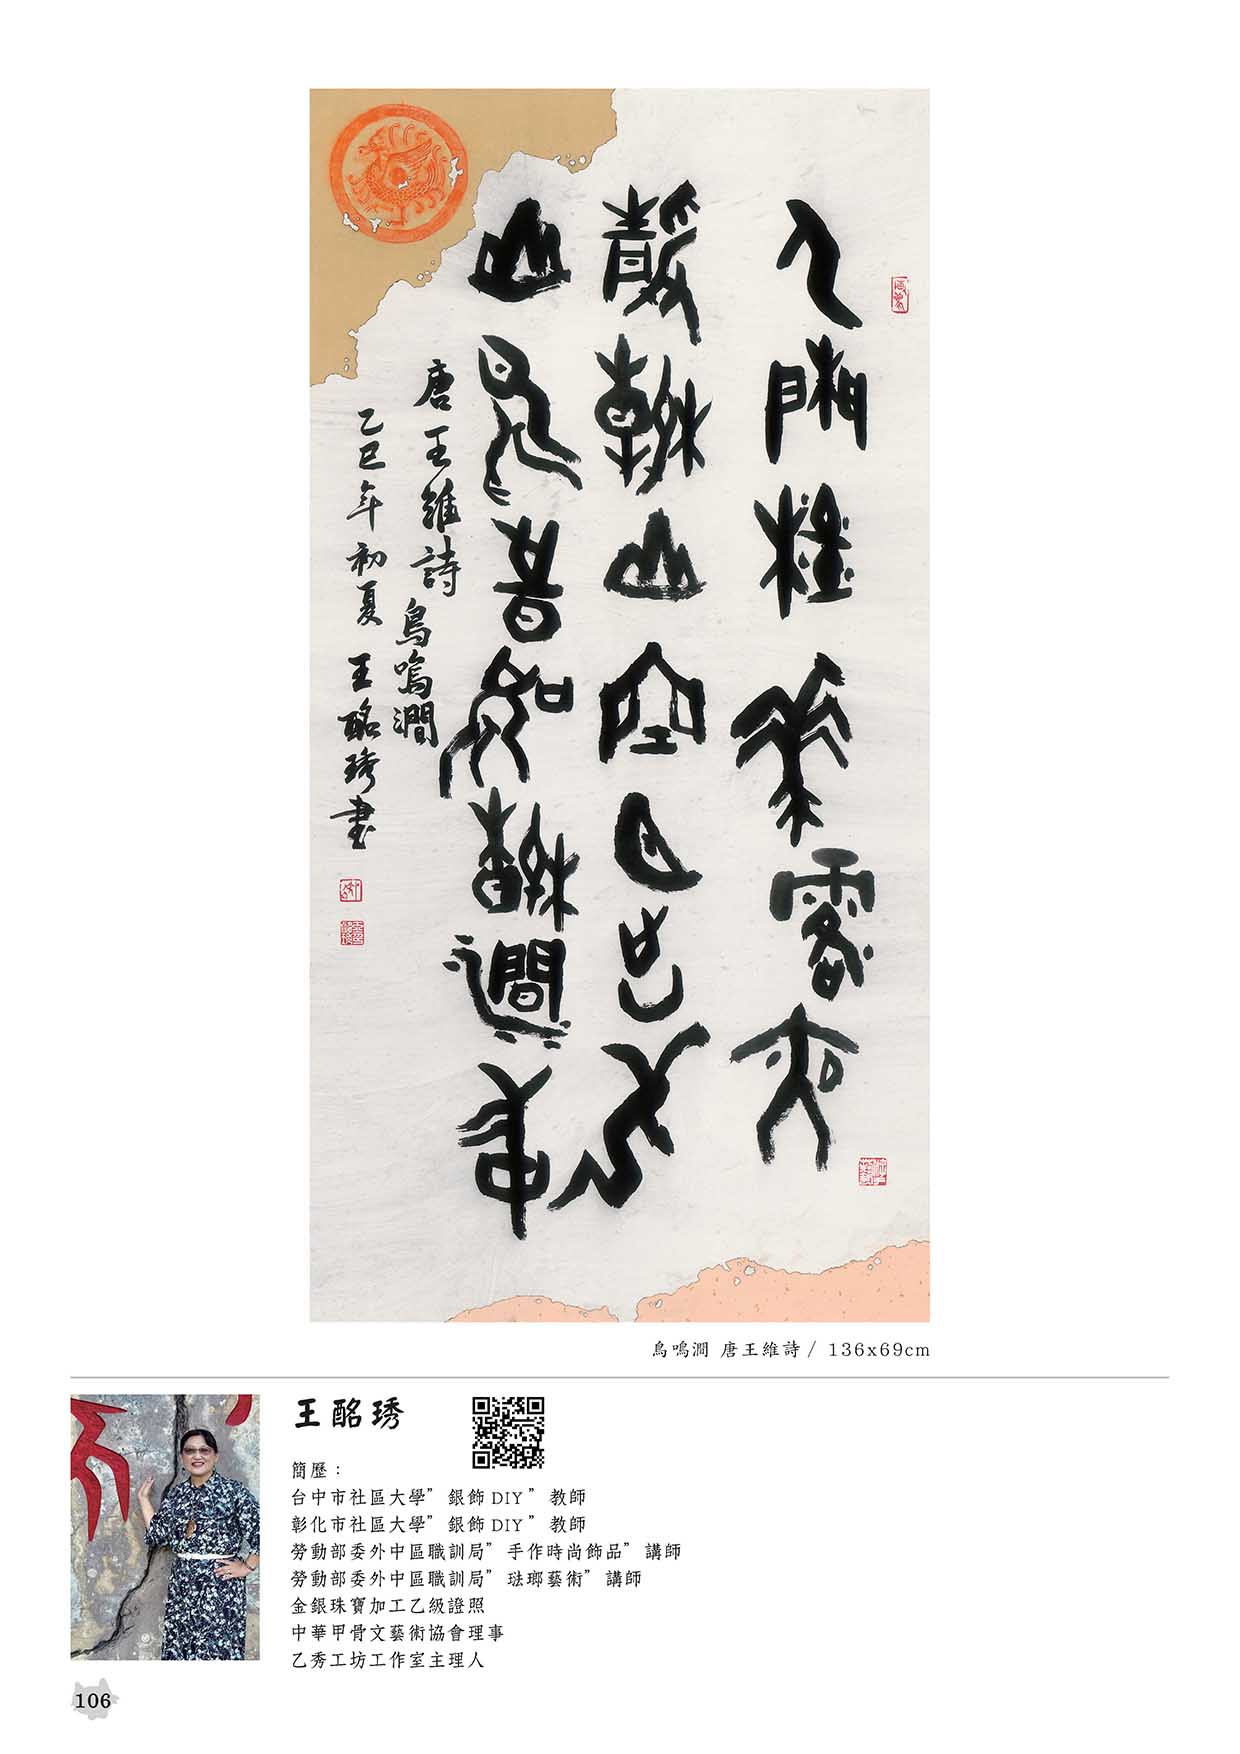 人閒桂華落夜
靜春山空月出驚
山鳥時鳴春澗中
唐王維詩 鳥鳴澗
乙巳年初夏 王酩琇書
鳥鳴澗 唐王維詩 / 136x69cm
王酩琇
簡歷：
台中市社區大學”銀飾DIY”教師
彰化市社區大學”銀飾DIY”教師
勞動部委外中區職訓局”手作時尚飾品”講師
勞動部委外中區職訓局”琺瑯藝術”講師
金銀珠寶加工乙級證照
中華甲骨文藝術協會理事
乙秀工坊工作室主理人
106